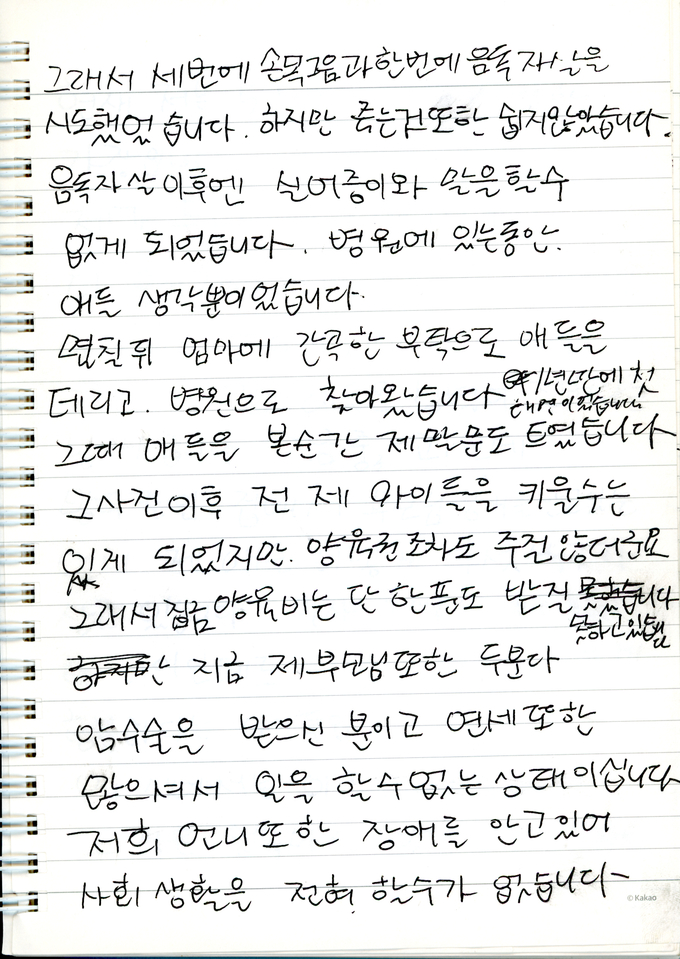 그래서 세번에 손목그음과한번에 음독자살을
시도했었습니다. 하지만 죽는건또한 쉽지않았습니다.
음독자살이후엔 실어증이와 말을할수
없게 되었습니다. 병원에 있는동안.
애들 생각뿐이었습니다.
몇칠뒤 엄마에 간곡한 부탁으로 애들을
데리고. 병원으로 찾아왔습니다 1년만에 첫
대면이었습니다
그때 애들을 본순간 제말문도 트였습니다
그사건이후 전 제 아이들을 키울수는
있게 되었지만. 양육권조차도 주질않더군요
그래서 지금 양육비는 단 한푼도 받질
못하고있습니다
지금 제부모님또한 두분다
암수술을 받으신 분이고 연세또한
많으셔서 일을 할수없는 상태이십니다
저희 언니또한 장애를 안고있어
사회 생활을 전혀 할수가 없습니다
© Kakao